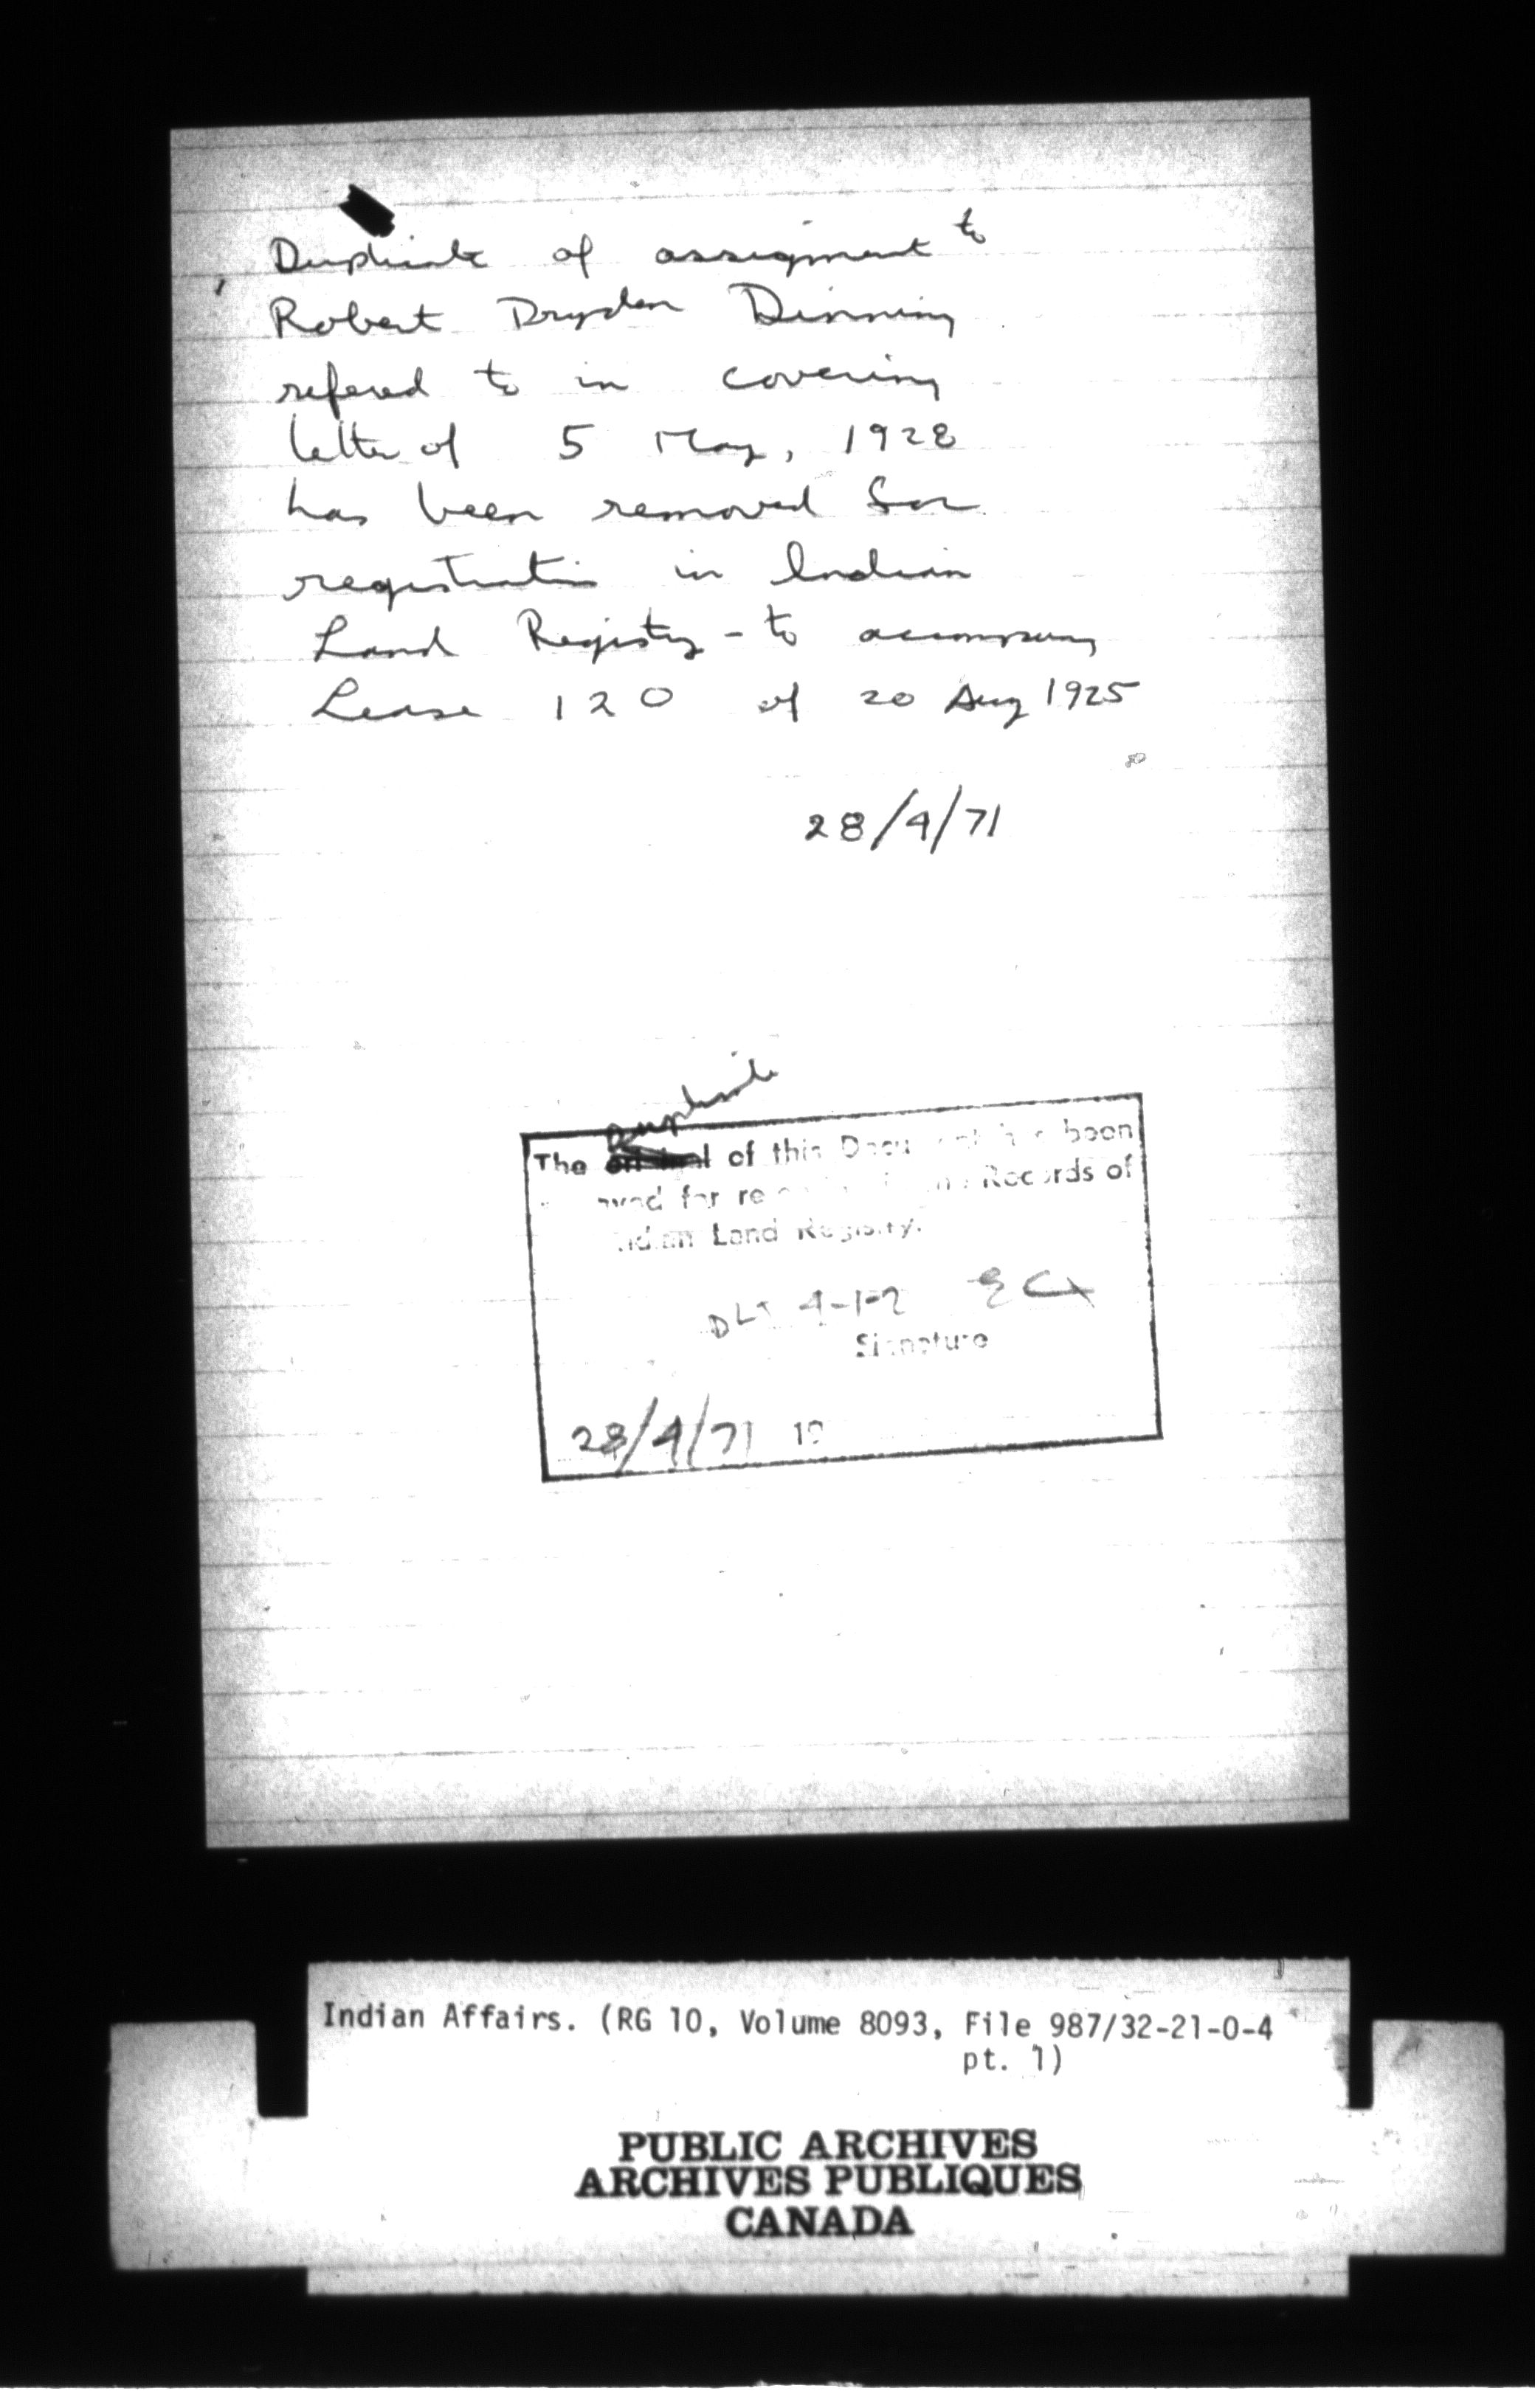 Duplicate of assignment to
Robert Dryden Dinning
refered to in covering
letter of 5 May, 1928
has been removed for
registration in Indian
Land Registry - to accompany
Lease 120 of 20 Aug 1925
28/4/71
Duplicate
The original of this Document has been
removed for re in Records of
Indian Land Registry.
4-1-2
Signature
28/4/71 19
Indian Affairs. (RG 10, Volume 8093, File 987/32-21-0-4
pt. 1)
PUBLIC ARCHIVES
ARCHIVES PUBLIQUES
CANADA